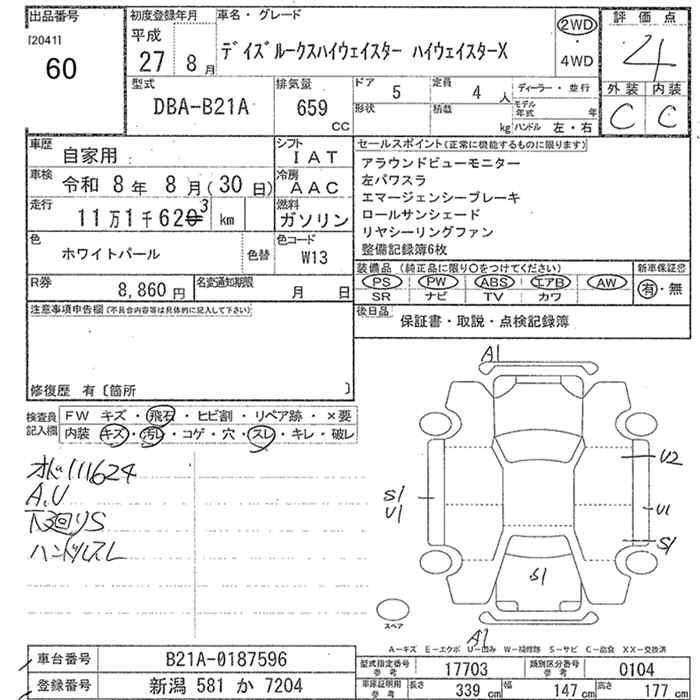 出品番号
[2041]
60
初度登録年月
平成
27 8月
車名・グレード
デイズルークスハイウェイスター ハイウェイスターX
2WD
・
4WD
評価点
4
外装 内装
C C
型式
DBA-B21A
排気量
659
CC
ドア 5
定員 4 人
形状
積載 kg
ディーラー・並行
モデル年式 年
ハンドル 左・右
車歴
自家用
シフト
IAT
車検 令和 8年 8月(30日)
冷房
AAC
走行
11万1千620 3 km
燃料
ガソリン
色
ホワイトパール
色替
色コード
W13
R券
8,860円
名変通知期限
月 日
セールスポイント(正常に機能するものに限ります)
アラウンドビューモニター
左パワスラ
エマージェンシーブレーキ
ロールサンシェード
リヤシーリングファン
整備記録簿6枚
装備品 (純正品に限り○をつけてください)
PS PW ABS エアB AW
SR ナビ TV カワ
新車保証書
有・無
後日品
保証書・取説・点検記録簿
注意事項申告欄(不具合内容等は具体的に記入して下さい)
修復歴 有〔箇所 〕
検査員記入欄
FW キズ・飛石・ヒビ割・リペア跡・×要
内装 キズ・汚レ・コゲ・穴・スレ・キレ・破レ
111624
A,U
S
ハンドルスレ
A1
U2
S1
U1
U1
S1
S1
スペア
A1
A-キズ E-エクボ U-凹み W-補修跡 S-サビ C-腐食 XX-交換済
車台番号
B21A-0187596
登録番号
新潟 581 か 7204
型式指定番号
参考
17703
類別区分番号
参考
0104
車庫証明用
参考
長さ 339 cm
幅 147 cm
高さ 177 cm